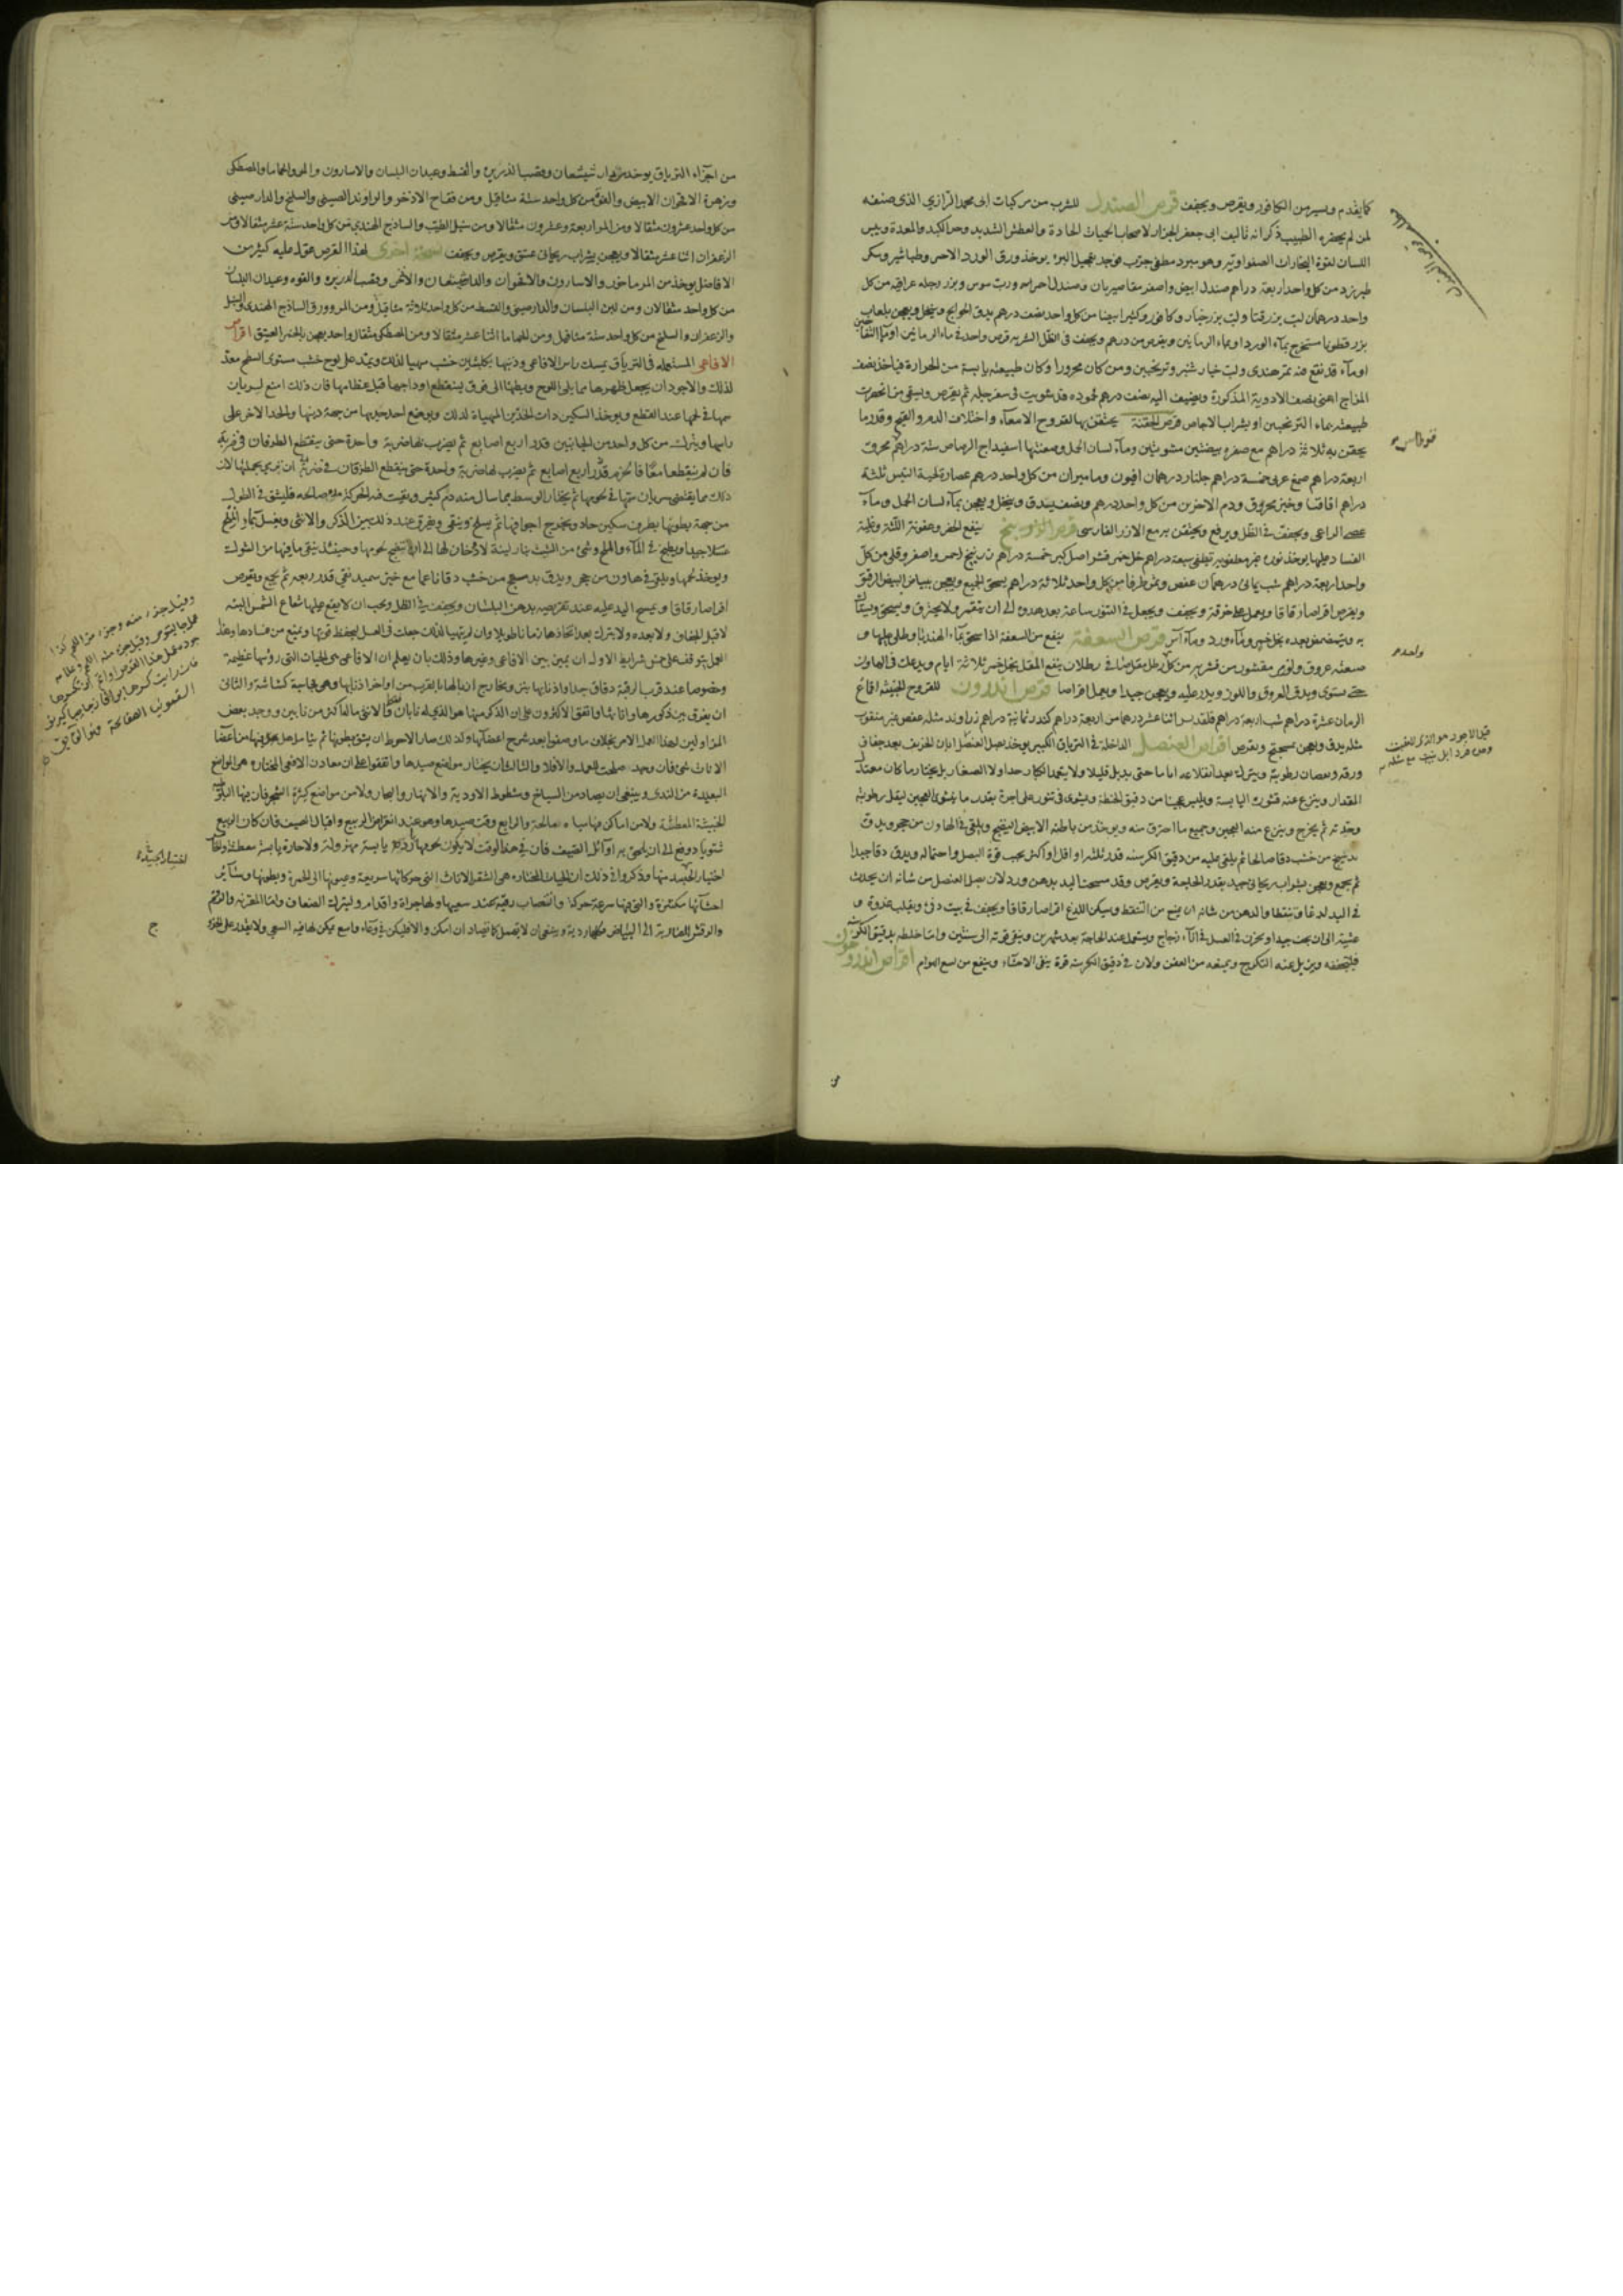 كما يقدم ويسير من الكافور ويقرص ويجفف قرص الصندل للشرب من مركبات ابى محمد الرازي الذى صنفه
لمن لم يحضره الطبيب ذكر انه تاليف ابى جعفر الجزار لاصحاب الحميات الحادة والعطش الشديد وحر الكبد والمعدة ويبس
اللسان لقوة البخارات الصفراوية وهو مبرد مطفى جرب فوجد عجيل البرء يوخذ ورق الورد الاحمر وطباشير وسكر
طبرزد من كل واحد اربعة دراهم صندل ابيض واصفر مقاصيريان وصندل احمر ورب سوس وبزر رجلة عراقية من كل
واحد درهمان لب بزر قثا ولب بزر خيار وكافور وكثيرا بيضا من كل واحد نصف درهم يدق الحوايج وينخل ويعجن بلعاب
بزر قطونا مستخرج بمآء الورد او بماء الرمانين ويقرص من درهم ويجفف فى الظل الشربه قرص واحد فى ماء الرمانين او مآء التفاحين
اومآء قد نقع فيه تمر هندى ولب خيار شنبر وترنجبين ومن كان محرورا وكان طبيعته يابسة من الحرارة فياخذ نصف
المزاج اعنى نصف الادوية المذكورة ويضيف اليه نصف درهم محموده قد شويت فى سفرجلة ثم يقرص ويسقى من انحصرت
طبيعته بماء الترنجبين او بشراب الاجاص قرص الحقنة يحتقن بها لقروح الامعآء واختلاف الدم والقيح وقدر ما
يحقن به ثلاثة دراهم مع صفره بيضتين مشويتين ومآء لسان الحمل وصفتها اسفيداج الرصاص ستة دراهم محرق
اربعة دراهم صمغ عربى خمسة دراهم جلنار درهمان افيون وماميران من كل واحد درهم عصارة لحية التيس ثلثة
دراهم اقاقيا وخبز محروق ودم الاخوين من كل واحد درهم ونصف يدق وينخل ويعجن بمآء لسان الحمل ومآء
عصى الراعى ويجفف فى الظل ويرفع ويحتقن به مع الازر الفارسى قرص الزرنيخ ينفع الحفر وعفونة اللثة وغلبة
الفساد عليها يوخذ نوره غير مطفيه تطفى سبعة دراهم خل خمر قشر اصل كبر خمسة دراهم زرنيخ احمر واصفر وقلى من كل
واحد اربعة دراهم شب يمانى درهمان عفص وثمر طرفا من كل واحد ثلاثة دراهم يسحق الجميع ويعجن ببياض البيض الرقيق
ويقرص اقراصا رقاقا ويعمل على خرقة ويجفف ويجعل فى التنور ساعة بعد هدوه الى ان تتقمر ولا يحترق ويسحق ويستاك
به ويتمضمض بعده بخل خمر ومآء ورد ومآء آس قرص السعفة ينفع من السعفة اذا سحق بمآء الهندبا وطلى عليها
صفته عروق ولوز مر مقشور من قشريه من كل رطل مقل صاف رطلان ينقع المقل بخل خمر ثلاثة ايام ويدعك فى الهاون
حتى يستوى ويدق العروق واللوز ويدر عليه ويعجن جيدا ويعمل اقراصا قرص اندرون للقروح الخبيثة اقماع
الرمان عشرة دراهم شب اربعة دراهم قلقديس اثنا عشر درهما مر اربعة دراهم كندر ثمانية دراهم زراوند مثله عفص غير مثقوب
مثله يدق ويعجن بميبختج ويقرص اقراص العنصل الداخلة فى الترياق الكبير يوخذ بصل العنصل ابان الخريف بعد جفاف
ورقه ونقصان رطوبته ويترك بعد اقتلاعه اياما حتى يدبل قليلا ولا يتخذ الكبار جدا ولا الصغار بل يختار ما كان معتدل
المقدار وينزع عنه قشوره اليابسة ويلبس عجينا من دقيق الحنطة ويشوى فى تنور على اجرة بقدر ما يشوى العجين ليقل رطوبته
وحدته ثم يخرج وينزع منه العجين وجميع ما احترق منه ويوخذ من باطنه الابيض النضيج ويلقى فى الهاون من حجر ويدق
بدستج من خشب دقا صالحا ثم يلقى عليه من دقيق الكرسنه قدر ثلثه او اقل او اكثر بحسب قوة البصل واحتماله ويدق دقا جيدا
ثم يجمع ويعجن بشراب ريحانى جيد بقدر الحاجة ويقرص وقد مسحت اليد بدهن ورد لان بصل العنصل من شانه ان يحدث
فى اليد لدغا وتنفطا والدهن من شانه ان يمنع من التنفط ويسكن اللدغ اقراصا رقاقا ويجفف فى بيت دفئ ويقلب غدوة و
عشية الى ان يجف جيدا ويخزن فى العسل فى انآء زجاج ويستعمل عند الحاجة بعد شهرين ويبقى قوته الى سنتين وانما خلطه بدقيق الكرسنه
فليجففه ويزيل عنه التكرج ويمنعه من العفن ولان فى دقيق الكرسنه قوة ينقى الاحشآء وينفع من لسع الهوام اقراص اندروخون
واحدم
من اجزاء الترياق يوخذ دار شيشعان وقصب الذريره والقسط وعيدان البلسان والاسارون والمو والحماما والمصطكى
وزهرة الاقحوان الابيض والفو من كل واحد ستة مثاقيل ومن فقاح الاذخر والراوند الصينى والسليخ والدار صينى
من كل واحد عشرون مثقالا ومن المر اربعة وعشرون مثقالا ومن سنبل الطيب والساذج الهندى من كل واحد ستة عشر مثقالا ومن
الزعفران اثنا عشر مثقالا ويعجن بشراب ريحانى عتيق ويقرص ويجفف نسخة اخرى لهذا القرص عول عليه كثير من
الافاضل يوخذ من المرماحوز والاسارون والاقحوان والدارشيشعان والاذخر وقصب الذريره والفوه وعيدان البلسان
من كل واحد مثقالان ومن لبن البلسان والدارصينى والقسط من كل واحد ثلاثة مثاقيل ومن المر وورق الساذج الهندى والسنبل
والزعفران والسليخ من كل واحد ستة مثاقيل ومن الحماما اثنا عشر مثقالا ومن المصطكى مثقال واحد يعجن بالخمر العتيق اقراص
الافاعى المستعمله فى الترياق يمسك راس الافاعى وذنبها بكلبتين خشب مهيا لذلك ويمد على لوح خشب مستوى السطح معد
لذلك والاجود ان يجعل ظهورها مما يلى اللوح وبطنها الى فوق لينقطع اوداجها قبل عظامها فان ذلك امنع لسريان
سمها فى لحمها عند القطع ويوخذ السكين ذات الحدين المهياة لذلك ويوضع احد حديها من جهة ذنبها والحد الاخر على
راسها ويترك من كل واحد من الجانبين قدر اربع اصابع ثم يضرب بها ضربة واحدة حتى ينقطع الطرفان فى ضربة
من جهة بطونها بطرف سكين حاد ويخرج اجوافها ثم يسلخ وينقى ويفرق عند ذلك بين الذكر والانثى ويغسل بمآء وملح
غسلا جيدا ويطبخ فى المآء والملح وشئ من الشبث بنار لينة لا دخان لها الى ان ينضج لحومها وحينئذ ينقى ما فيها من الشوك
ويوخذ لحمها ويلقى فى هاون من حجر ويدق بدستج من خشب دقا ناعما مع خبز سميد نقى قدر ربعه ثم يجمع ويقرص
اقراصا رقاقا ويمسح اليد عليه عند تقريصه بدهن البلسان ويجفف فى الظل ويجب ان لا يقع عليها شعاع الشمس البته
لا قبل الجفاف ولا بعده ولا يترك بعد اتخاذها زمانا طويلا وان لم يتهيا لذلك جعلت فى العسل ليحفظ قوتها ويمنع من فسادها وهذا
العمل يتوقف على خمس شرايط الاولى ان يميز بين الافاعى وغيرها وذلك بان يعلم ان الافاعى هى الحيات التى رؤسها عظيمة
وخصوصا عند قرب الرقبة دقاق جدا واذنابها بتر ومخارج اثفالها بالقرب من اواخر اذنابها وهى مجاسية كشاشة والثانى
ان يفرق بين ذكورها واناثها واتفق الاكثرون على ان الذكر منها هو الذى له نابان فقط والانثى ما لها اكثر من نابين ووجد بعض
المزاولين لهذا العمل الامر بخلاف ما وصفوا بعد تشريح اعضآئها ولذلك صار الاحوط ان يشق بطونها ثم يتامل هل يجد فيها من اعضا
الاناث شئ فان وجد صلحت للعمل والافلا والثالث ان يختار مواضع صيدها واتفقوا على ان معادن الافعى المختاره هى المواضع
البعيدة من الندى وينبغى ان يصاد من السباخ وشطوط الاودية والانهار والبحار ولا من مواضع كثيرة الشجر فان فيها البلوط
الخبيثة المعطشة ولا من اماكن فيها مياه مالحة والرابع وقت صيدها وهو عند انقراض الربيع واقبال الصيف فان كان الربيع
شتويا دوفع الى ان يلحق به اوآئل الصيف فان فى هذا الوقت لا يكون لحومها رديه يابسة مهزولة ولا حارة يابسة معطشة والخامس
اختيار الجيد منها وذكروا فى ذلك ان الحيات المختاره هى الشقر الاناث التى حركاتها سريعة وعيونها الى الحمرة وبطونها وسآئر
والرقش الضاربة الى البياض فكلها ردية وينبغى ان لا يقصل كما تصاد ان امكن والا فليكن فى وعآء واسع يمكن لها فيه السعى ولا يقدر على الخروج
اختيار الجيدة